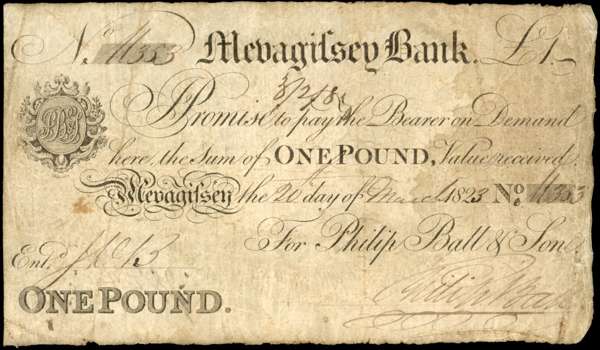 No. 11353 Mevagiſsey Bank. £1.–
Promise to pay the Bearer on Demand
here, the Sum of ONE POUND, Value received.
Mevagiſsey the 20th day of March 1823 No. 11353
For Philip Ball & Son
Entd.
ONE POUND.
Philip Ball